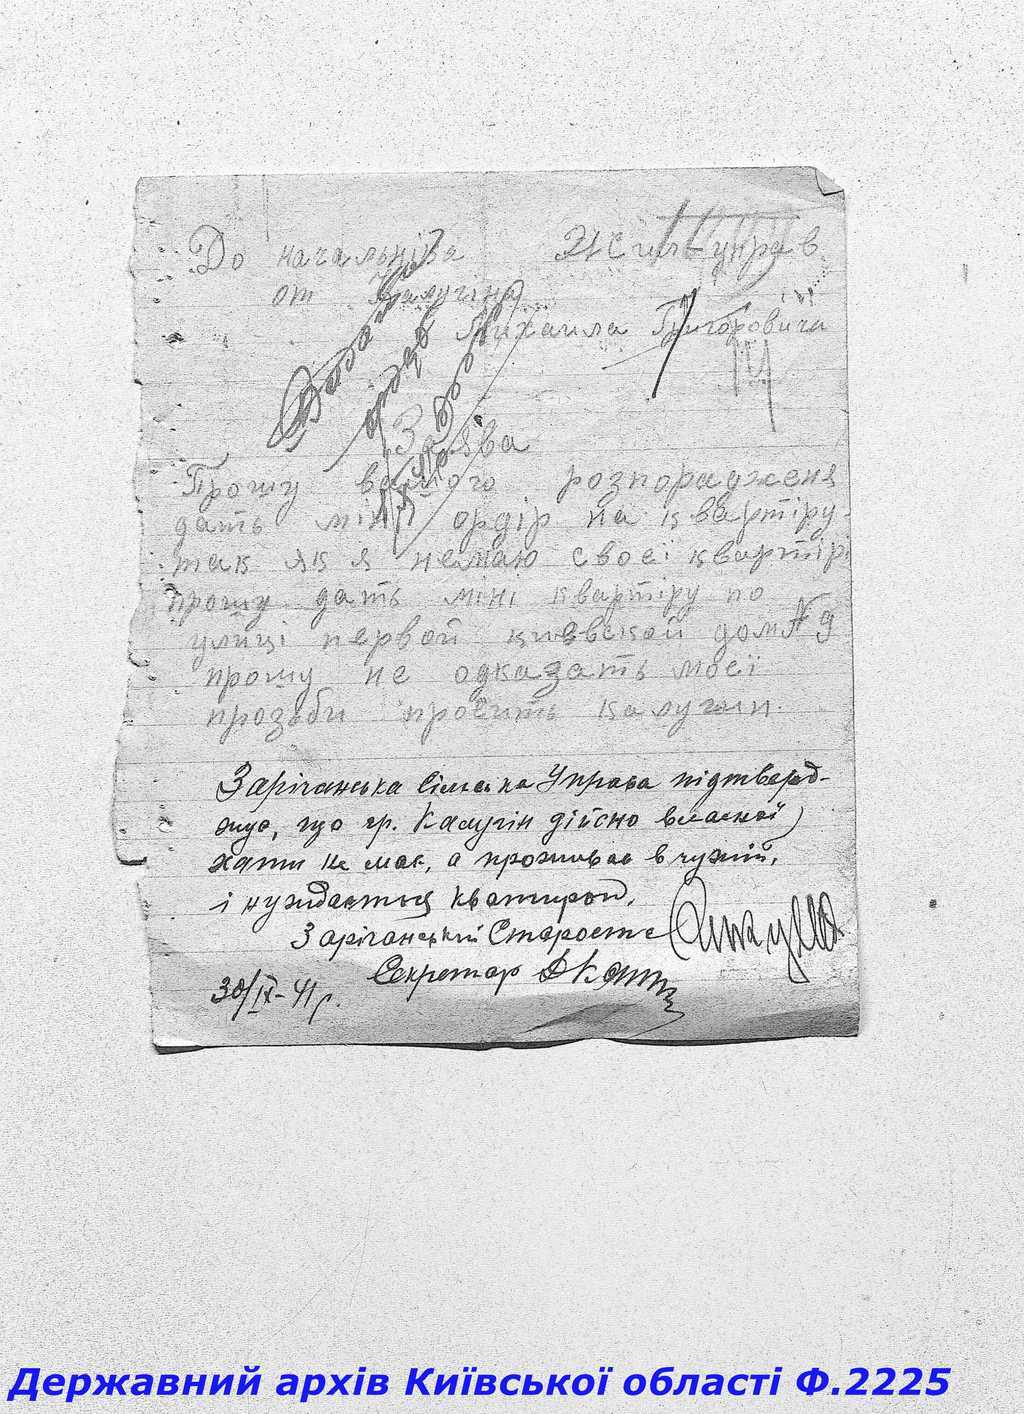 До начальніка Жилуправ
от Калугіна
Михаила Григоровича
14
Заява
Прошу вашого розпорадженя
дать міні ордір на квартіру
так як я немаю своєі квартірі
прошу дать міні квартіру по
улиці первой киевской дом № 9
прошу не одказать моєї
прозьби просить Калугин.
Зарічанська Сільська Управа підтверд-
жує, що гр. Калугін дійсно власної
хати не має, а проживає в чужій,
і нуждається квартирою.
Зарічанський Староста
Секретар
30/IX-41 р.
Державний архів Київської області Ф.2225